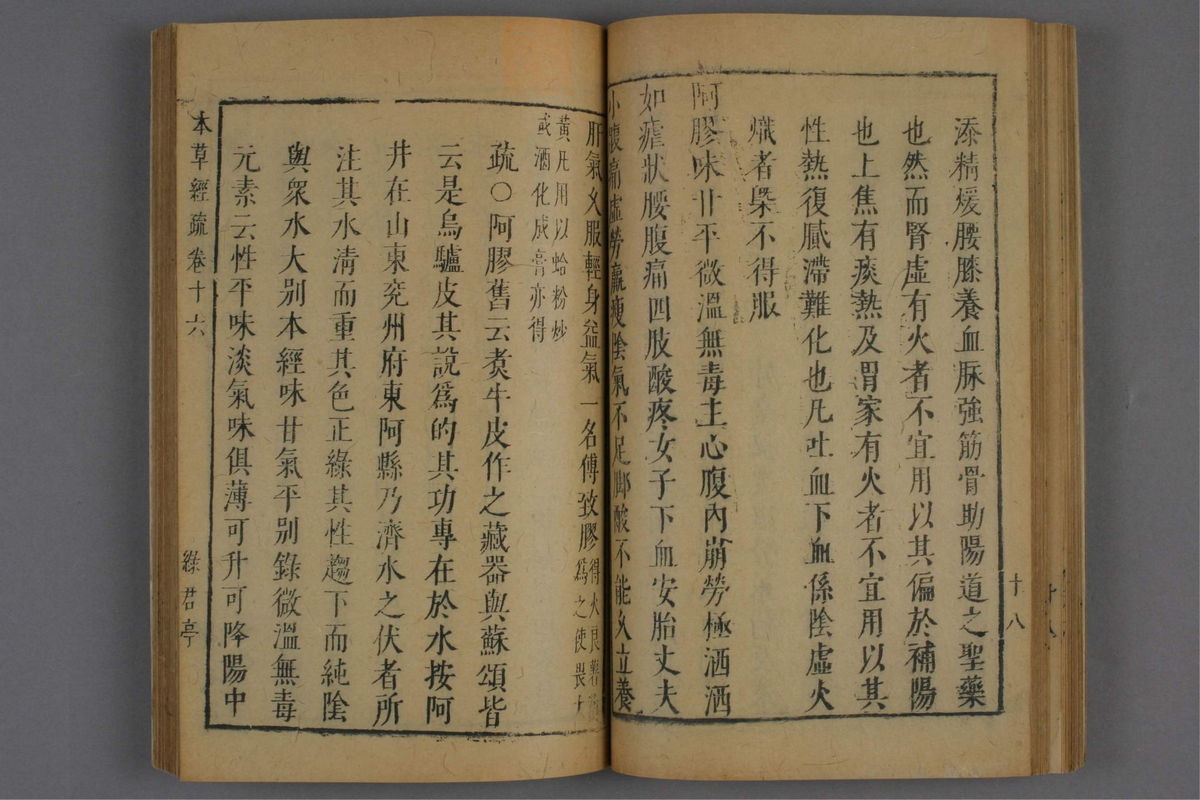 添精煖腰膝養血脉強筋骨助陽道之聖藥
也然而腎虛有火者不宜用以其偏於補陽
也上焦有痰熱及胃家有火者不宜用以其
性熱復膩滯難化也凡吐血下血係陰虛火
熾者槩不得服
阿膠味甘平微溫無毒主心腹內崩勞極洒洒
如瘧狀腰腹痛四肢酸疼女子下血安胎丈夫
小腹痛虛勞羸瘦陰氣不足脚酸不能久立養
十八
肝氣久服輕身益氣一名傅致膠得火良薯蕷
為之使畏大
黃凡用以蛤粉炒
或酒化成膏亦得
疏○阿膠舊云煑牛皮作之藏器與蘇頌皆
云是烏驢皮其說爲的其功專在於水按阿
井在山東兖州府東阿縣乃濟水之伏者所
注其水淸而重其色正綠其性趨下而純陰
與衆水大别本經味甘氣平别錄微溫無毒
元素云性平味淡氣味俱薄可升可降陽中
本草經疏 卷十六
綠君亭